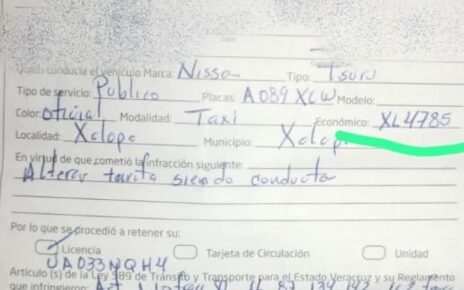 Quién conducía el vehículo Marca: Nissan Tipo: Tsuru
Tipo de servicio: Publico Placas: A089 XCW Modelo:
Color: oficial Modalidad: Taxi Económico: XL4785
Localidad: Xalapa Municipio: Xalapa
En virtud de que cometió la infracción siguiente:
Alterar tarifa siendo conducta
Por lo que se procedió a retener su:
Licencia Tarjeta de Circulación Unidad
UA033NQH4
Artículo (s) de la Ley 589 de Tránsito y Transporte para el Estado Veracruz y su Reglamento
que infringieron: Art